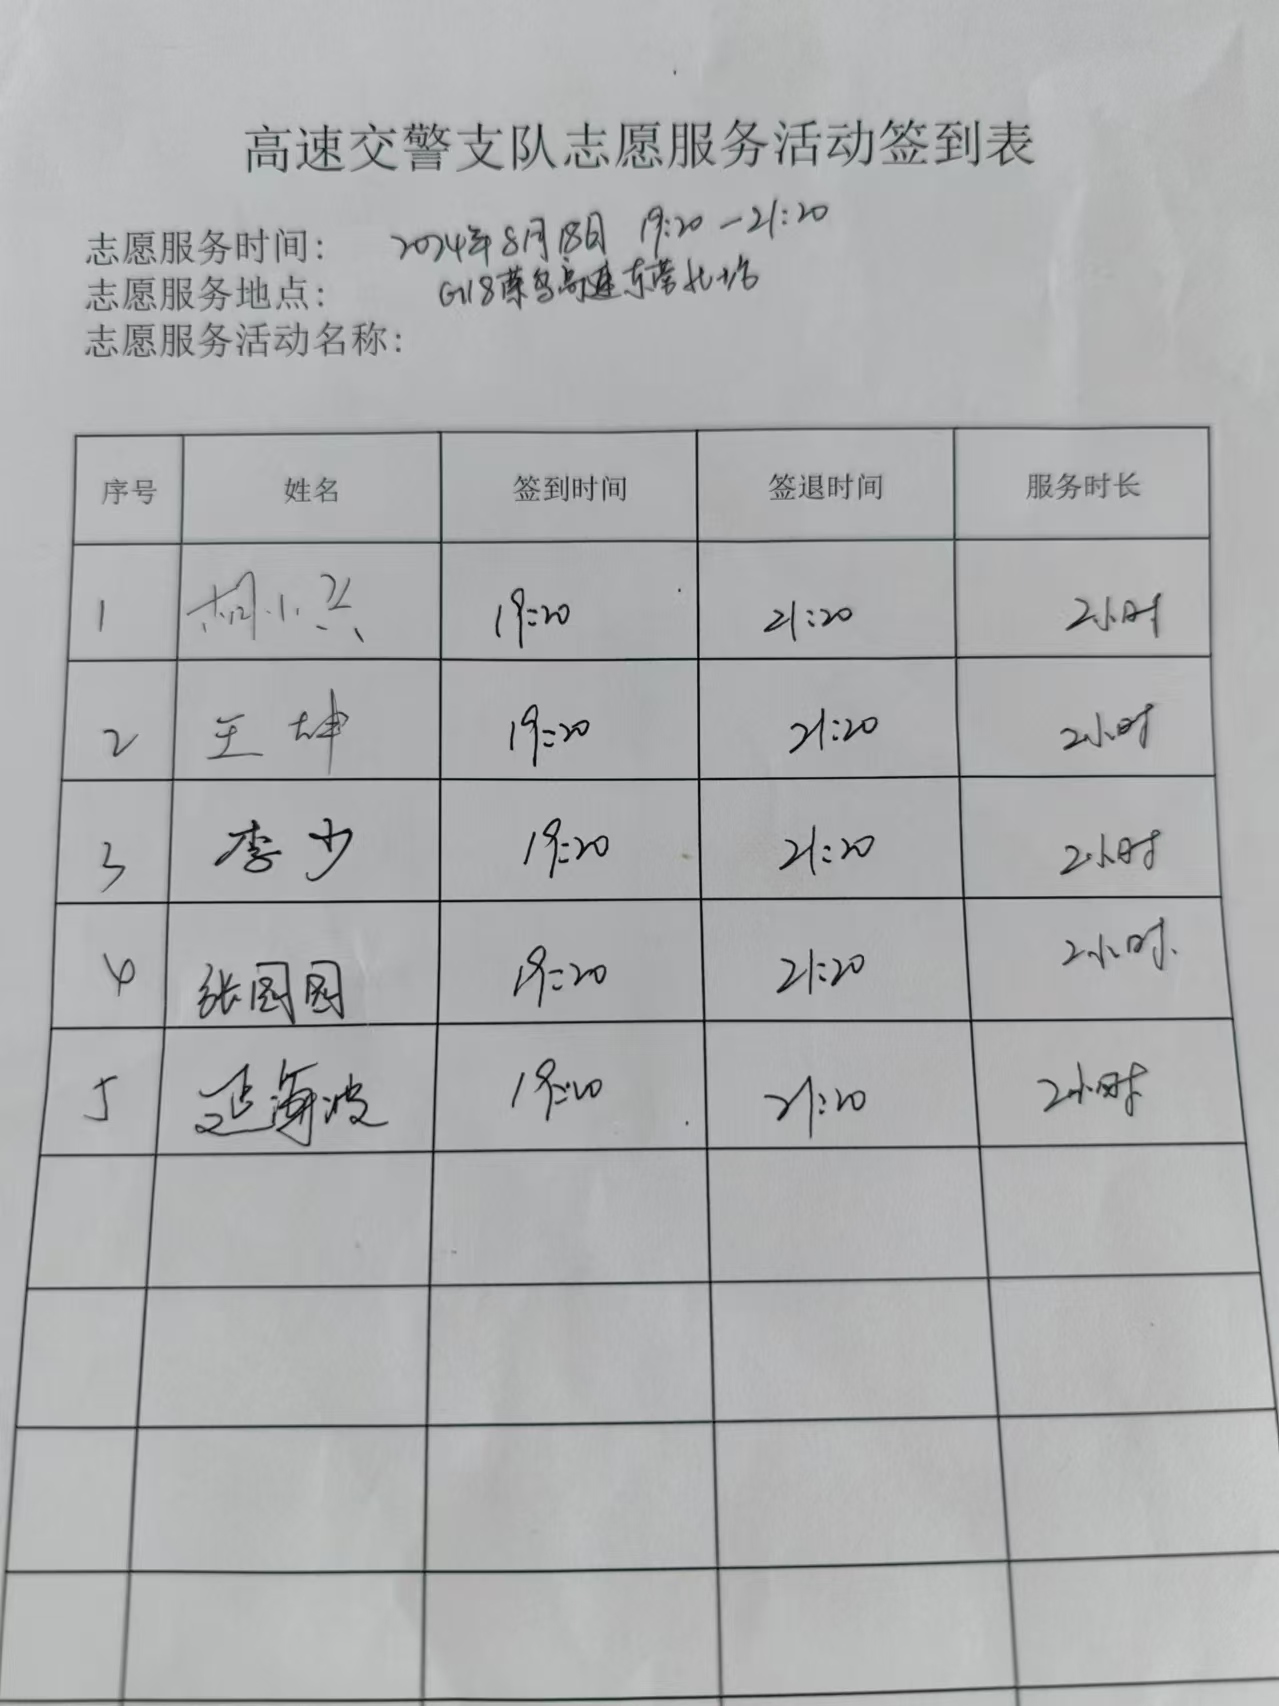 高速交警支队志愿服务活动签到表
志愿服务时间： 2024年8月18日 19:20-21:20
志愿服务地点： G18荣乌高速东营北站
志愿服务活动名称：
序号 姓名 签到时间 签退时间 服务时长
1 胡小兴 19:20 21:20 2小时
2 王坤 19:20 21:20 2小时
3 李少 19:20 21:20 2小时
4 张园园 19:20 21:20 2小时
5 延海波 19:20 21:20 2小时